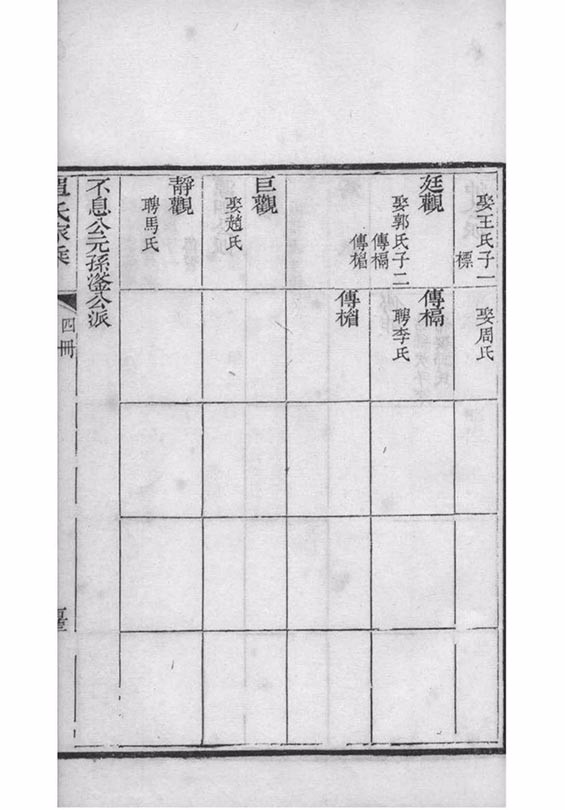 娶王氏子一
標
娶周氏
廷觀
娶郭氏子二
傳槅
傳楣
傳槅
聘李氏
傳楣
巨觀
娶趙氏
靜觀
聘馬氏
不息公元孫瀅公派
氏家乘
四冊